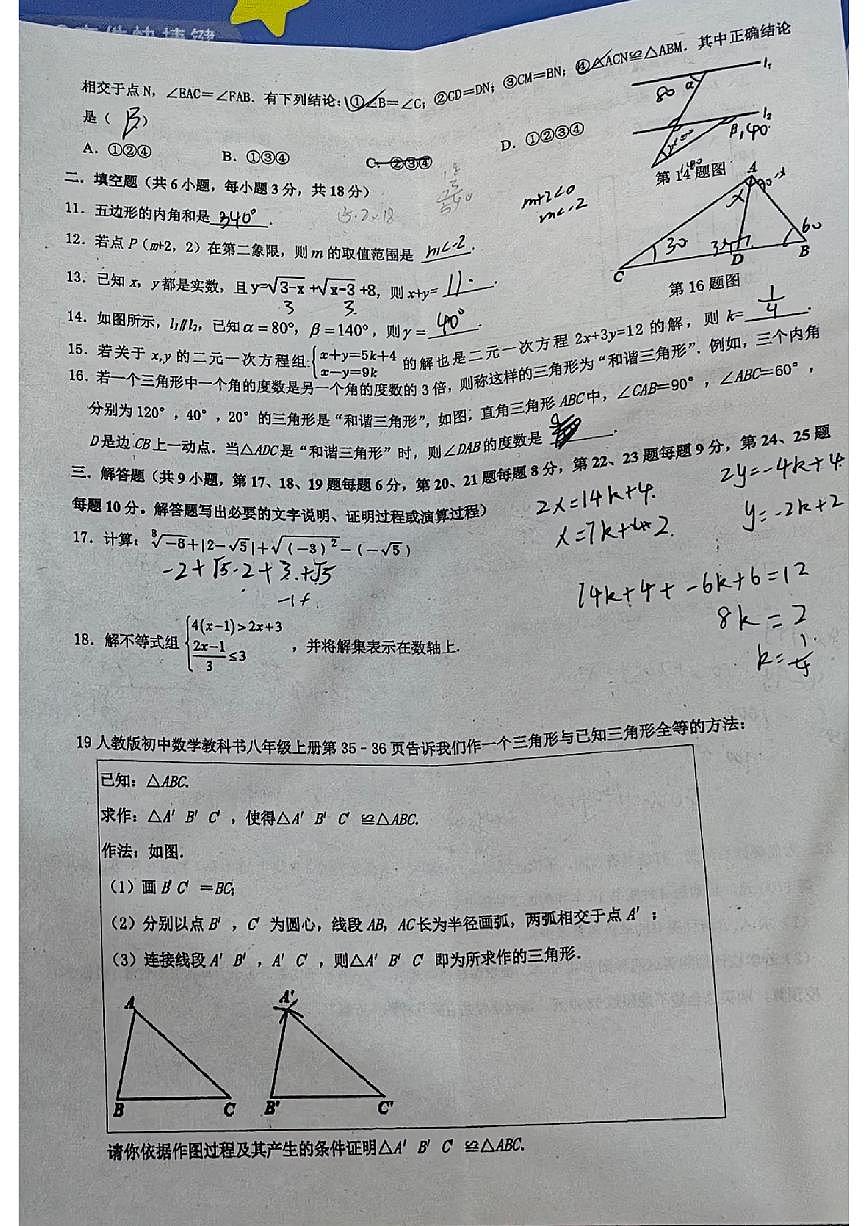 相交于点N，∠EAC=∠FAB．有下列结论：①∠B=∠C；②CD=DN；③CM=BN；④△ACN≌△ABM．其中正确结论
是（ B ）
A．①②④ B．①③④ C．②③④ D．①②③④
l₁
80 α
l₂
β 140
第14题图
二．填空题（共6小题，每小题3分，共18分）
m+2<0
m<-2
11．五边形的内角和是 540° ．
12．若点P（m+2，2）在第二象限，则m的取值范围是 m<-2 ．
A
30
60
C D B
第16题图
13．已知x，y都是实数，且y=√3-x+√x-3+8，则x+y= 11 ．
3 3
14．如图所示，l₁∥l₂，已知α=80°，β=140°，则γ= 40° ．
15．若关于x,y的二元一次方程组{x+y=5k+4 x-y=9k 的解也是二元一次方程2x+3y=12的解，则k= 1/4 ．
16．若一个三角形中一个角的度数是另一个角的度数的3倍，则称这样的三角形为“和谐三角形”．例如，三个内角
分别为120°，40°，20°的三角形是“和谐三角形”，如图，直角三角形ABC中，∠CAB=90°，∠ABC=60°，
D是边CB上一动点．当△ADC是“和谐三角形”时，则∠DAB的度数是
三．解答题（共9小题，第17、18、19题每题6分，第20、21题每题8分，第22、23题每题9分，第24、25题
每题10分。解答题写出必要的文字说明、证明过程或演算过程）
2x=14k+4.
x=7k+2
2y=-4k+4
y=-2k+2
17．计算：∛-8+|2-√5|+√(-3)²-(-√5)
-2+√5-2+3+√5
-1+
14k+4+-6k+6=12
8k=2
k=1/4
18．解不等式组{4(x-1)>2x+3 (2x-1)/3≤3 ，并将解集表示在数轴上．
19 人教版初中数学教科书八年级上册第35-36页告诉我们作一个三角形与已知三角形全等的方法：
已知：△ABC.
求作：△A' B' C'，使得△A' B' C'≌△ABC.
作法：如图.
（1）画B' C'=BC；
（2）分别以点B'，C'为圆心，线段AB，AC长为半径画弧，两弧相交于点A'；
（3）连接线段A' B'，A' C'，则△A' B' C'即为所求作的三角形．
A A'
B C B' C'
请你依据作图过程及其产生的条件证明△A' B' C'≌△ABC.